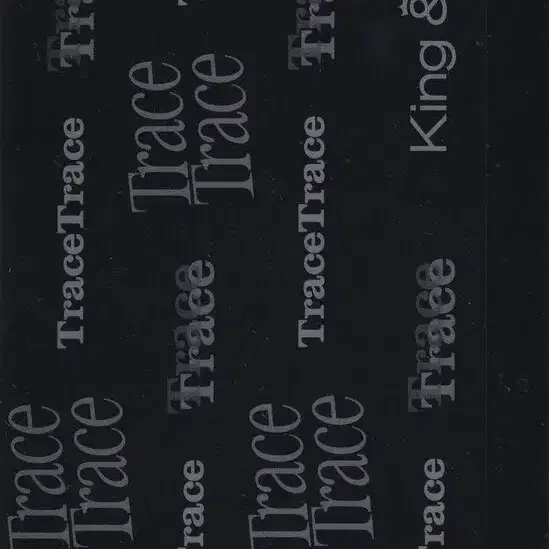 Trace
Trace
Trace
Trace
King &
TraceTrace
TraceTrace
Trace
Trace
Trace
Trace
Trace
Trace
Trace
Trace
Trace
Trace